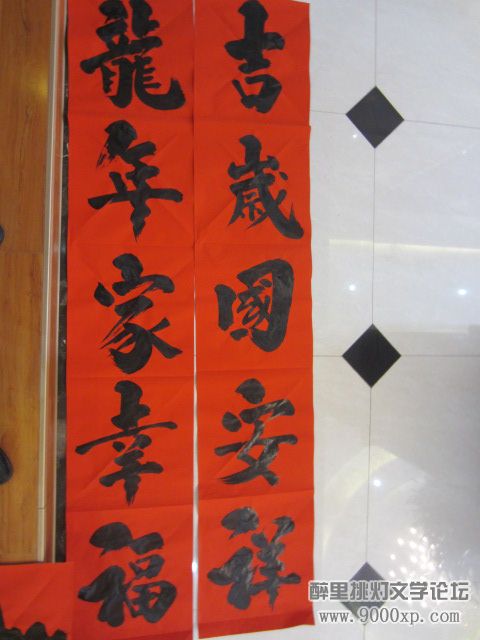 吉歲國安祥
龍年家幸福
醉里挑灯文学论坛
www.9000xp.com